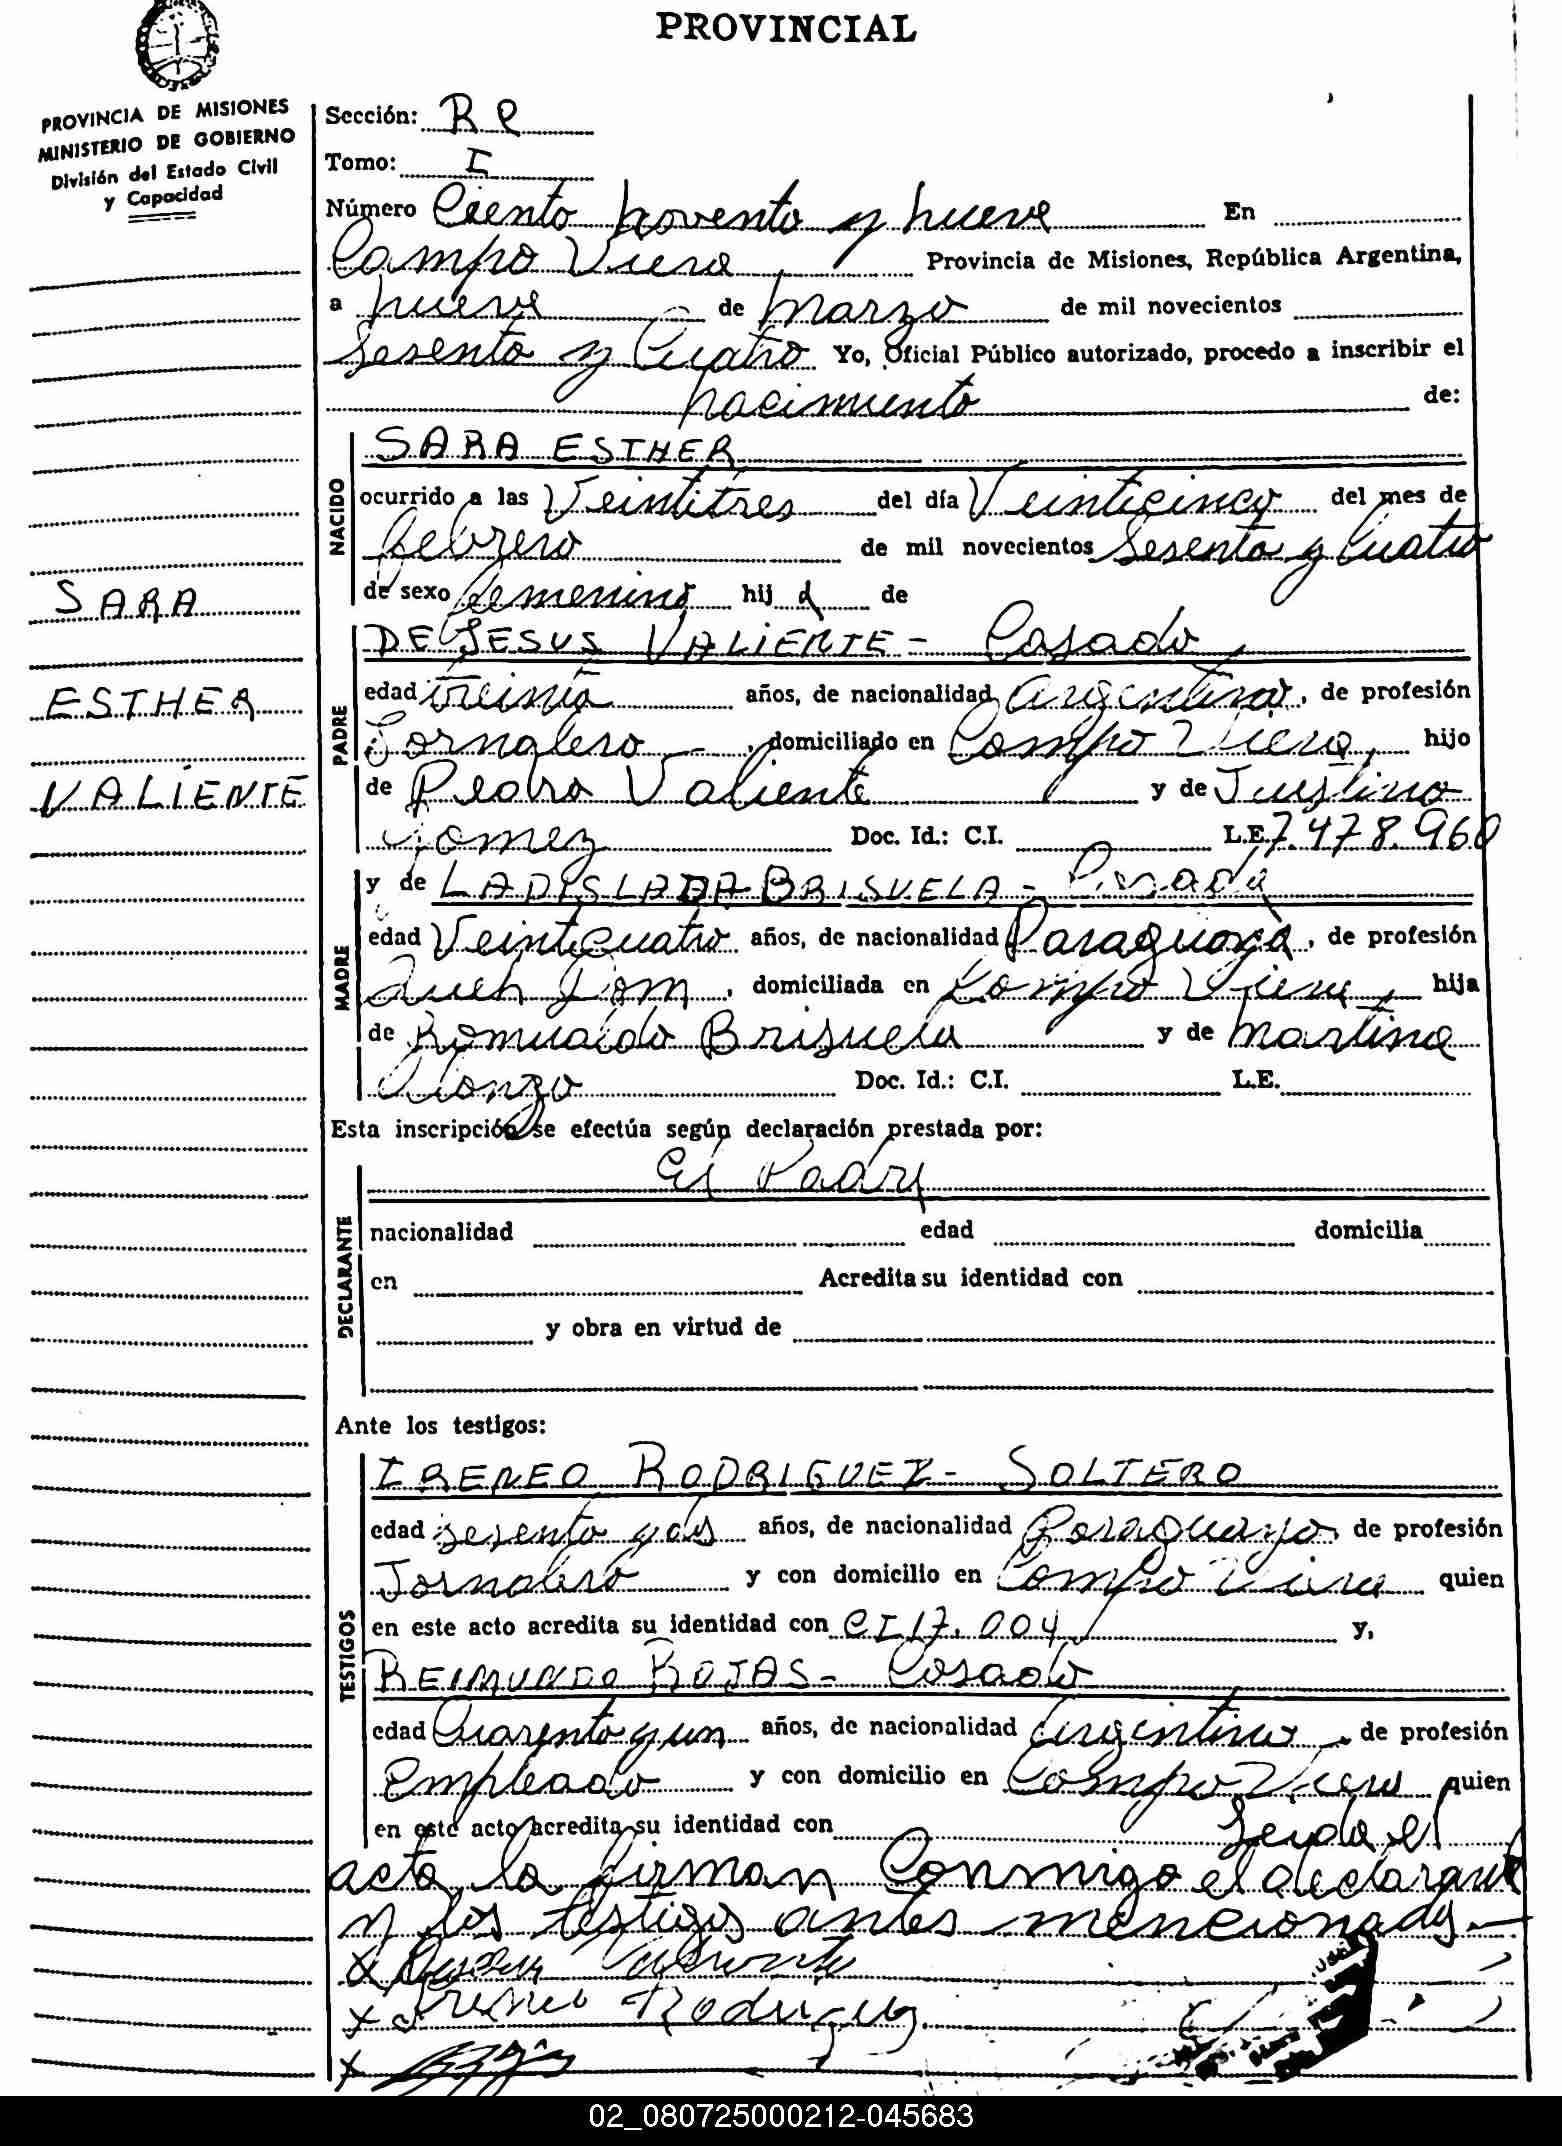 PROVINCIAL
PROVINCIA DE MISIONES
MINISTERIO DE GOBIERNO
División del Estado Civil
y Capacidad
SARA
ESTHER
VALIENTE
Sección: R e
Tomo: I
Número Ciento noventa y nueve En
Campo Viera Provincia de Misiones, República Argentina,
a nueve de marzo de mil novecientos
Sesenta y Cuatro Yo, Oficial Público autorizado, procedo a inscribir el
nacimiento de:
NACIDO
SARA ESTHER
ocurrido a las Veintitres del día Veinticinco del mes de
febrero de mil novecientos Sesenta y Cuatro
de sexo femenino hij a de
PADRE
DE JESUS VALIENTE - Casado
edad treinta años, de nacionalidad argentina, de profesión
Jornalero , domiciliado en Campo Viera, hijo
de Pedro Valiente y de Justina
Gomez Doc. Id.: C.I. L.E. 7.478.960
MADRE
y de LADISLADA BRISUELA - Casada
edad Veinticuatro años, de nacionalidad Paraguaya, de profesión
Queh Dom, domiciliada en Campo Viera, hija
de Romualdo Brisuela y de Martina
Alonzo Doc. Id.: C.I. L.E.
Esta inscripción se efectúa según declaración prestada por:
El Padre
DECLARANTE
nacionalidad edad domicilia
en Acredita su identidad con
y obra en virtud de
Ante los testigos:
TESTIGOS
IRENEO RODRIGUEZ - SOLTERO
edad sesenta y dos años, de nacionalidad Paraguayo, de profesión
Jornalero y con domicilio en Campo Viera quien
en este acto acredita su identidad con CI 17.004 y,
REIMUNDO ROJAS - Casado
edad Cuarenta y un años, de nacionalidad argentino, de profesión
Empleado y con domicilio en Campo Viera quien
en este acto acredita su identidad con Leida el
acta la firman Conmigo el declarante
y los testigos antes mencionados.-
x Valiente
x Ireneo Rodriguez
x
02_080725000212-045683